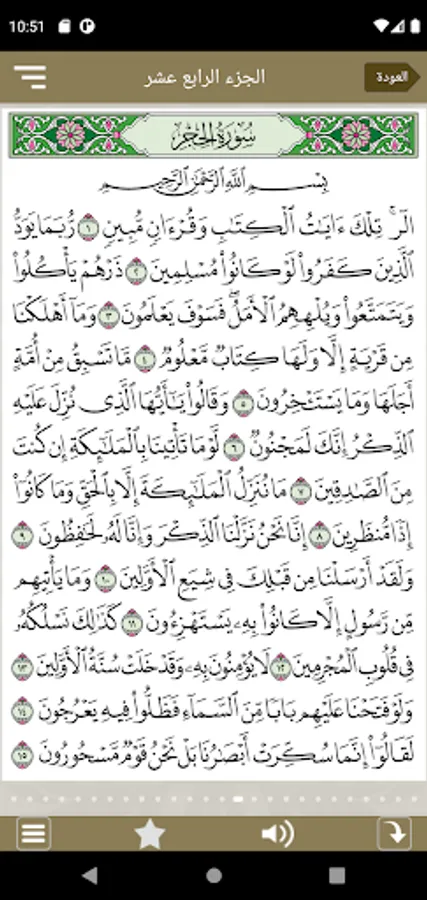 10:51
العودة
الجزء الرابع عشر
سُورَةُ الحِجْرِ
بِسْمِ ٱللَّهِ ٱلرَّحْمَٰنِ ٱلرَّحِيمِ
الٓر ۚ تِلْكَ ءَايَٰتُ ٱلْكِتَٰبِ وَقُرْءَانٍ مُّبِينٍ ١ رُّبَمَا يَوَدُّ
ٱلَّذِينَ كَفَرُوا۟ لَوْ كَانُوا۟ مُسْلِمِينَ ٢ ذَرْهُمْ يَأْكُلُوا۟
وَيَتَمَتَّعُوا۟ وَيُلْهِهِمُ ٱلْأَمَلُ ۖ فَسَوْفَ يَعْلَمُونَ ٣ وَمَآ أَهْلَكْنَا
مِن قَرْيَةٍ إِلَّا وَلَهَا كِتَابٌ مَّعْلُومٌ ٤ مَّا تَسْبِقُ مِنْ أُمَّةٍ
أَجَلَهَا وَمَا يَسْتَـْٔخِرُونَ ٥ وَقَالُوا۟ يَٰٓأَيُّهَا ٱلَّذِى نُزِّلَ عَلَيْهِ
ٱلذِّكْرُ إِنَّكَ لَمَجْنُونٌ ٦ لَّوْ مَا تَأْتِينَا بِٱلْمَلَٰٓئِكَةِ إِن كُنتَ
مِنَ ٱلصَّٰدِقِينَ ٧ مَا نُنَزِّلُ ٱلْمَلَٰٓئِكَةَ إِلَّا بِٱلْحَقِّ وَمَا كَانُوٓا۟
إِذًا مُّنظَرِينَ ٨ إِنَّا نَحْنُ نَزَّلْنَا ٱلذِّكْرَ وَإِنَّا لَهُۥ لَحَٰفِظُونَ ٩
وَلَقَدْ أَرْسَلْنَا مِن قَبْلِكَ فِى شِيَعِ ٱلْأَوَّلِينَ ١٠ وَمَا يَأْتِيهِم
مِّن رَّسُولٍ إِلَّا كَانُوا۟ بِهِۦ يَسْتَهْزِءُونَ ١١ كَذَٰلِكَ نَسْلُكُهُۥ
فِى قُلُوبِ ٱلْمُجْرِمِينَ ١٢ لَا يُؤْمِنُونَ بِهِۦ ۖ وَقَدْ خَلَتْ سُنَّةُ ٱلْأَوَّلِينَ ١٣
وَلَوْ فَتَحْنَا عَلَيْهِم بَابًا مِّنَ ٱلسَّمَآءِ فَظَلُّوا۟ فِيهِ يَعْرُجُونَ ١٤
لَقَالُوٓا۟ إِنَّمَا سُكِّرَتْ أَبْصَٰرُنَا بَلْ نَحْنُ قَوْمٌ مَّسْحُورُونَ ١٥